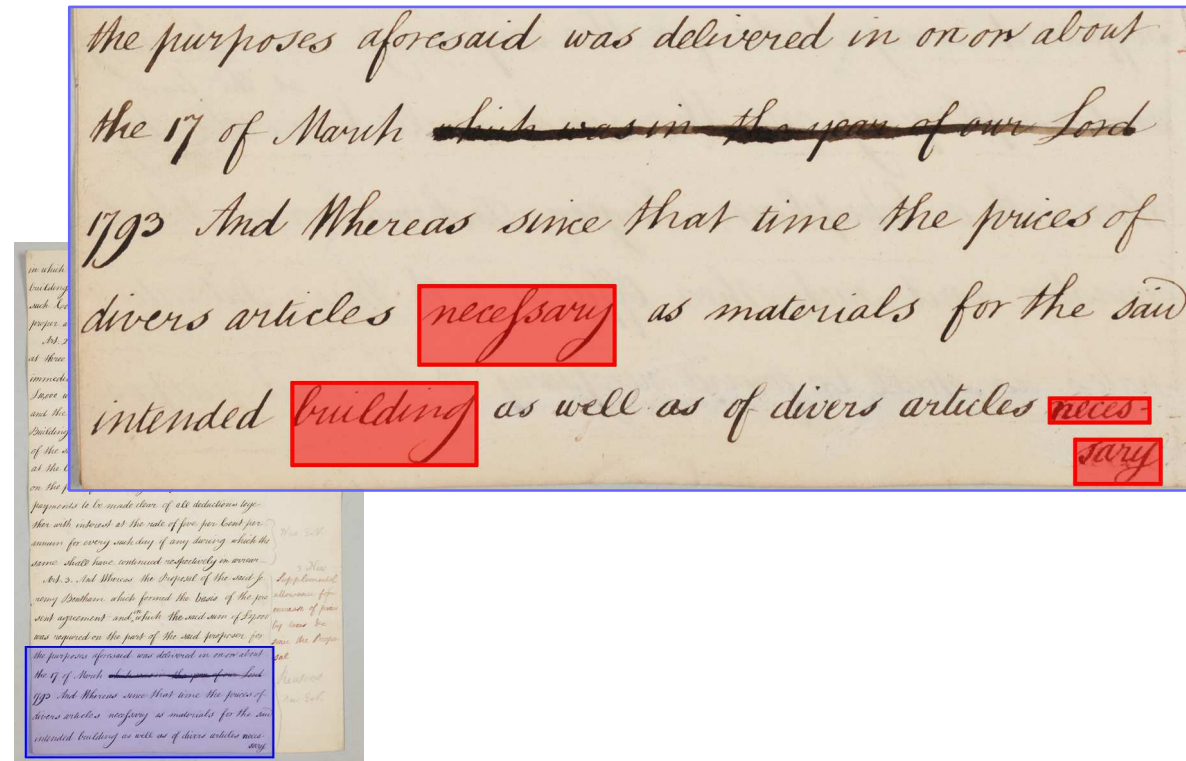 the purposes aforesaid was delivered in on or about
the 17 of March which was in the year of our Lord
1793 And Whereas since that time the prices of
divers articles necessary as materials for the said
intended building as well as of divers articles neces-
sary
in which
building
such
proper
Art. 2
at three
and the
Building
of the
at the
on the
payments to be made clear of all deductions toge-
ther with interest at the rate of five per Cent per
annum for every such day if any during which the
same shall have continued respectively in arrear
Art. 3. And Whereas the Proposal of the said Je
remy Bentham which formed the basis of the pre
sent agreement and in which the said sum of
was required on the part of the said proposer for
the purposes aforesaid was delivered in on or about
the 17 of March which was in the year of our Lord
1793 And Whereas since that time the prices of
divers articles necessary as materials for the said
intended building as well as of divers articles neces-
sary
Supplemental
allowance for
increase of price